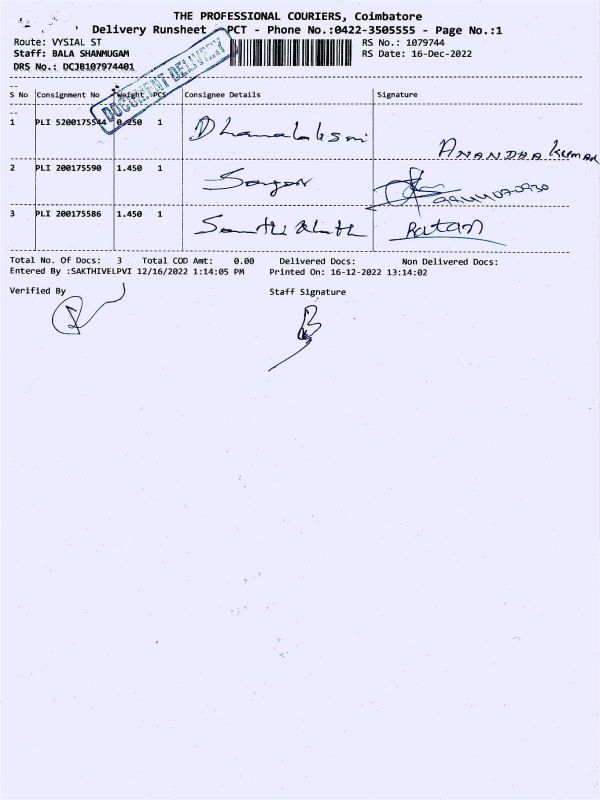 THE PROFESSIONAL COURIERS, Coimbatore
Delivery Runsheet - PCT - Phone No.:0422-3505555 - Page No.:1
Route: VYSIAL ST
RS No.: 1079744
Staff: BALA SHANMUGAM
RS Date: 16-Dec-2022
DRS No.: DCJB107974401
DOCUMENT DELIVERY
S No Consignment No Weight PCS Consignee Details Signature
1 PLI 5200175544 0.250 1 Dhanalaksmi ANANDHA KUMAR
2 PLI 200175590 1.450 1
3 PLI 200175586 1.450 1 Ratan
Total No. Of Docs: 3 Total COD Amt: 0.00 Delivered Docs: Non Delivered Docs:
Entered By :SAKTHIVELPVI 12/16/2022 1:14:05 PM Printed On: 16-12-2022 13:14:02
Verified By Staff Signature